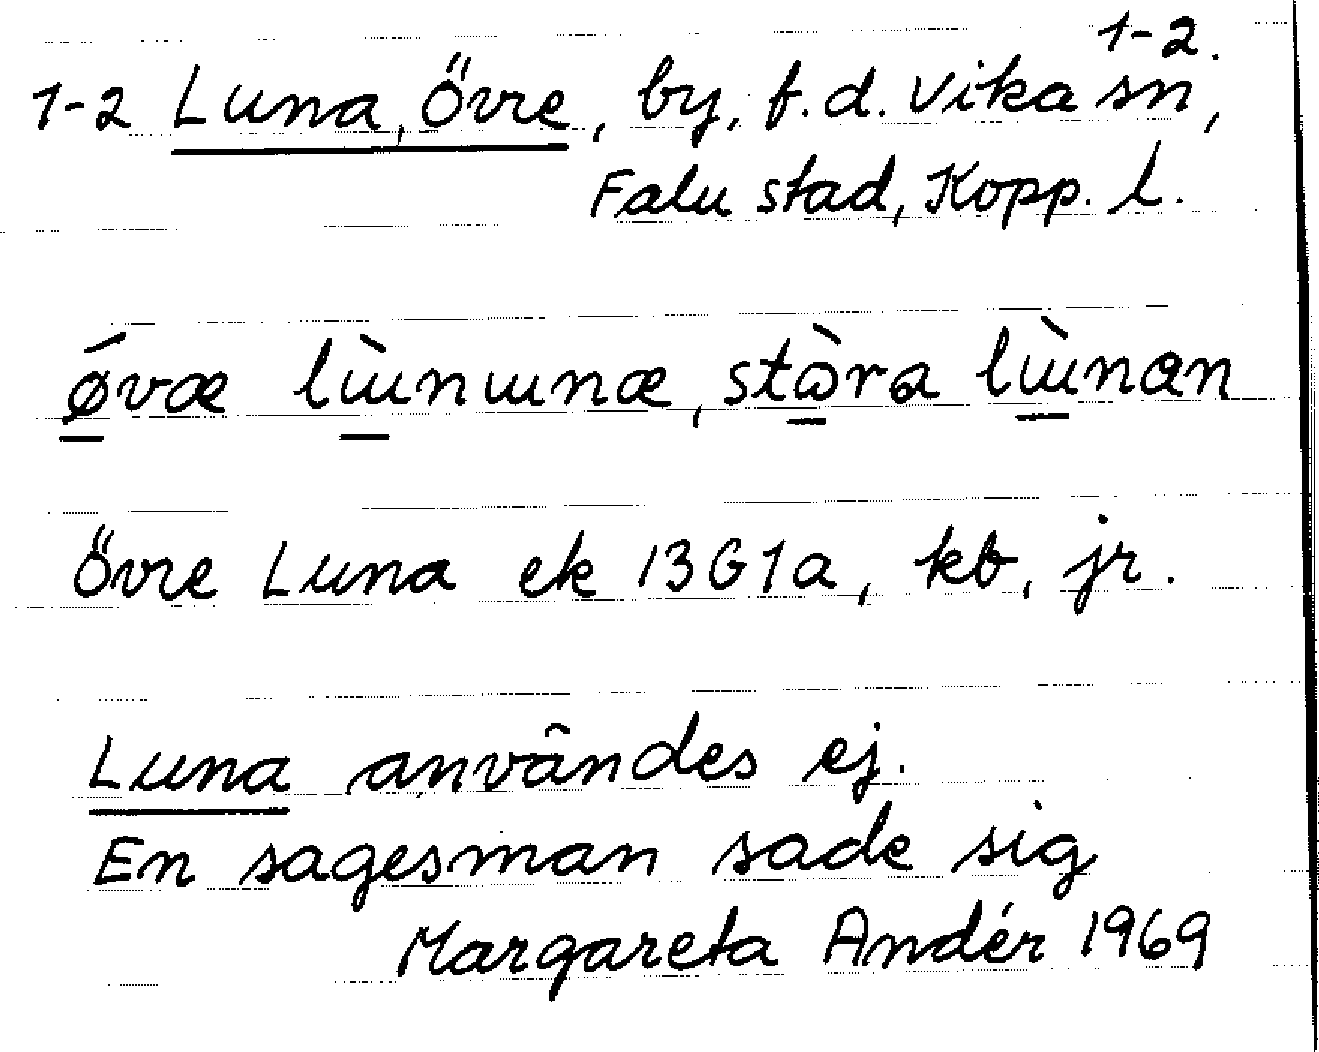 1-2.
1-2 Luna, Övre, by, f.d. Vika sn,
Falu stad, Kopp. l.
ǿvæ lɯ̀nɯnæ, stɷ̀ra lɯ̀nan
Övre Luna ek 13G1a, kb, jr.
Luna användes ej.
En sagesman sade sig
Margareta Andér 1969